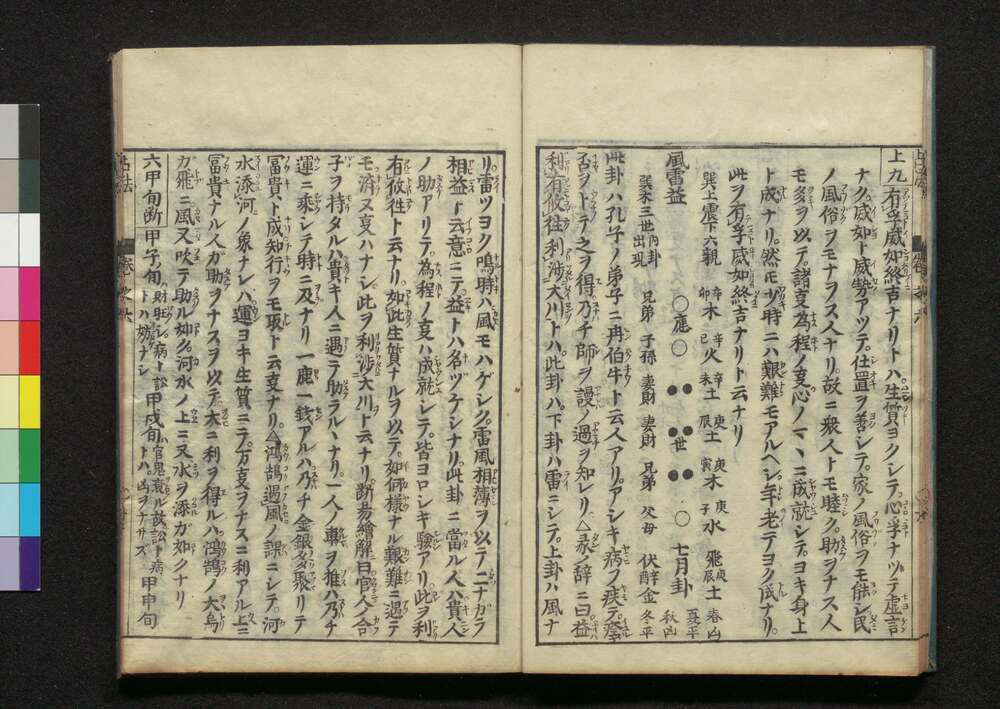 上九 有孚威如終吉ナリトハ生質ヨクシテ心孚ナツテ虚言
ナク威如ト威勢アツテ仕置ヲ善シテ家ノ風俗ヲモ能シ民
ノ風俗ヲモナヲス人ナリ故ニ衆人トモ睦ク助ヲナス人
モ多ヲ以テ諸支為程ノ支心ノマヽニ成就シテヨキ身上
ト成ナリ然モ時ニハ艱難モアルヘシ年老テヨク成ナリ
此ヲ有孚威如終吉ナリト云ナリ
巽上震下六親 辛卯木 辛巳火 辛未土 庚辰土 庚寅木 庚子水 飛庚辰土 春凶
巽木三世内卦出現 兄弟 子孫 妻財 妻財 兄弟 父母 伏辛酉金 夏平 秋凶 冬平
風雷益 應 世 七月卦
此卦ハ孔子ノ弟子ニ冉伯牛ト云人アリアシキ病ヲ疾テ
否ヲトテ之ヲ得乃チ師ヲ謾ノ過ヲ知レリ△彖辞ニ曰益
利有攸往利涉大川トハ此卦ハ下卦ハ雷ニシテ上卦ハ風ナ
リ雷ツヨク鳴時ハ風モハゲシク雷風相薄ヲ以テ二ナガラ
相益ト云意ニテ益トハ名ツケシナリ此卦ニ當ル人ハ貴人
ノ助アリテ為程ノ支ハ成就シテ皆ヨロシキ驗アリ此ヲ利
有攸往ト云ナリ如此生質ナルヲ以テ如何様ナル艱難ニ遇テ
モ済ヌ支ハナシ此ヲ利涉大川ト云ナリ断易繪解曰官人合
子ヲ持タルハ貴キ人ニ遇テ助ラルヽナリ一人ノ車ヲ推ハ乃チ
運ニ乘シテ時ニ及ナリ一鹿一銭アルハ乃チ金銀多聚リテ
冨貴ト成知行ヲモ取ト云支ナリ△鴻鵠遇風ノ課ニシテ河
水添河ノ象ナレハ運ヨキ生質ニテ万支ヲナスニ利アル上ニ
冨貴ナル人ガ助ヲナスヲ以テ大ニ利ヲ得ルハ鴻鵠ノ大鳥
ガ飛ニ風又吹テ助ル如ク河水ノ上ニ又水ヲ添ガ如クナリ
六甲旬断 甲子旬ハ財旺シ病ト訟トハ妨ナシ 甲戌旬ハ官鬼衰ル故訟ト病トハ凶ヲナサズ 甲申旬